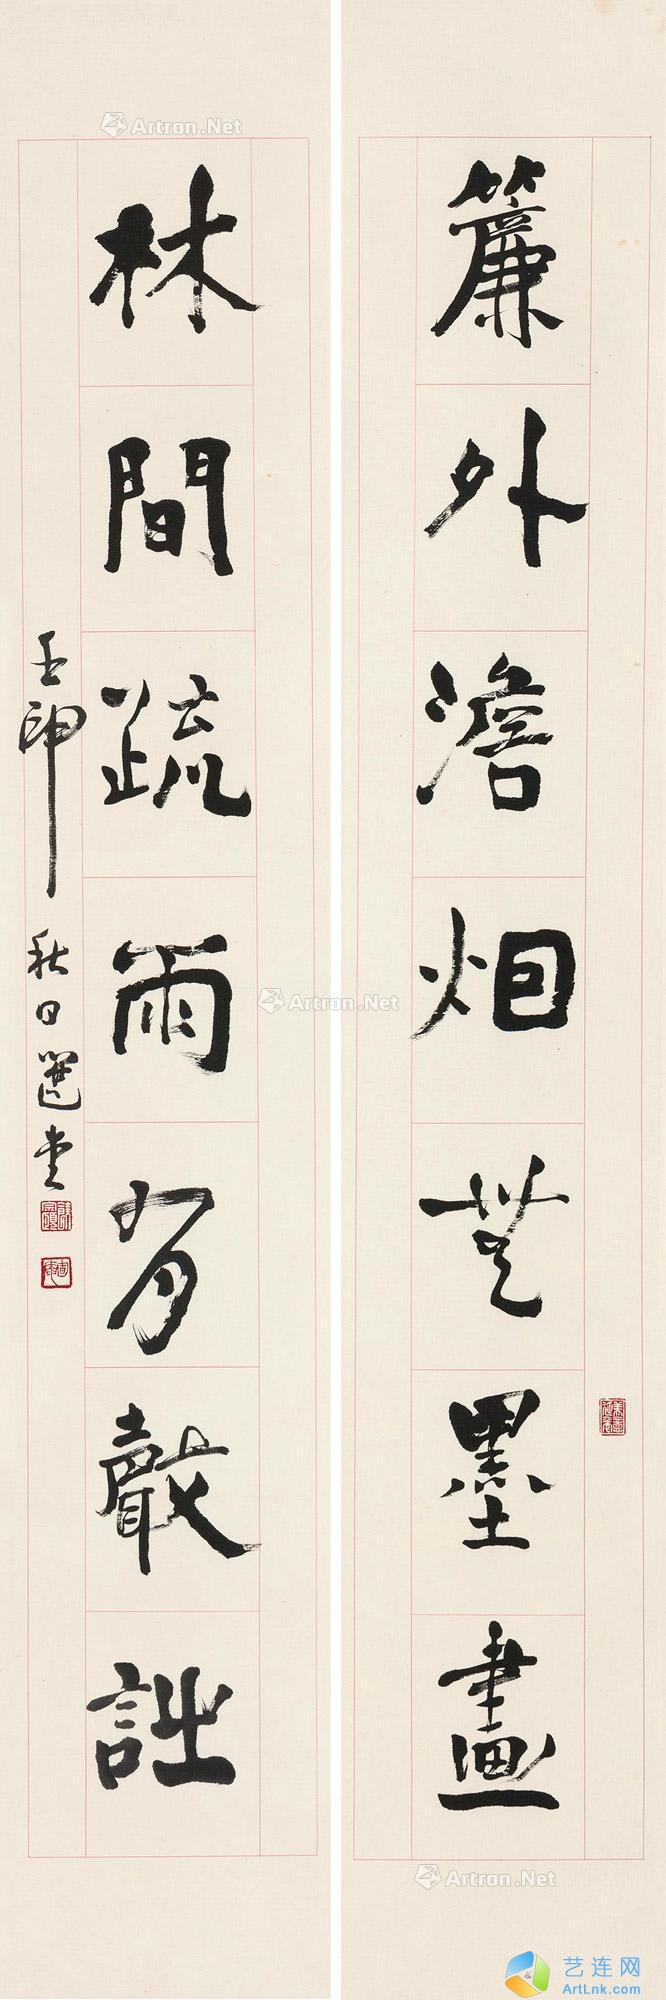 簾外澹烟無墨畫
林間疏雨有聲詩
壬申秋日選堂
Artron.Net
Artron.Net
Artron.Net
艺连网
ArtLnk.com